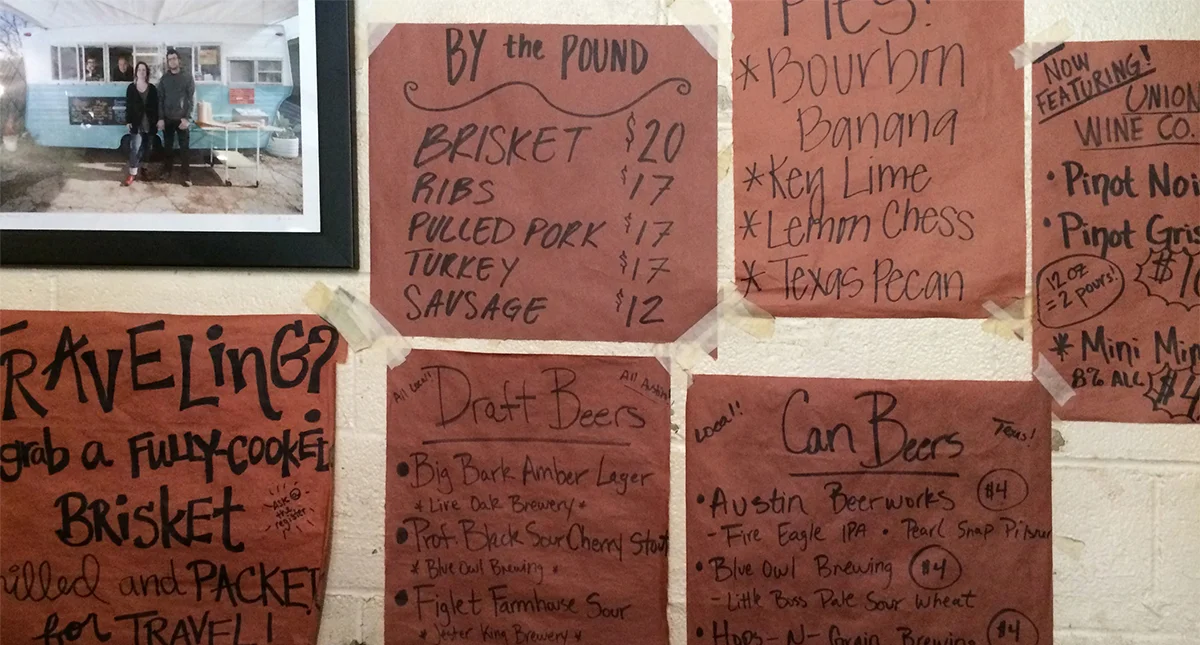 BY the POUND
BRISKET $20
RIBS $17
PULLED PORK $17
TURKEY $17
SAUSAGE $12
PIES!
*Bourbon
Banana
*Key Lime
*Lemon Chess
*Texas Pecan
NOW
FEATURING!
UNION
WINE CO.
• Pinot Noi
• Pinot Gris
12 oz
=2 pours!
* Mini Mim
8% ALC
$4
TRAVELinG?
grab a FULLY-COOKED
BRISKET
ASK @
the
register
chilled and PACKED
for TRAVEL!
All Local! All Austin!
Draft Beers
• Big Bark Amber Lager
* Live Oak Brewery *
• Prof. Black Sour Cherry Stout
* Blue Owl Brewing *
• Figlet Farmhouse Sour
* Jester King Brewery *
Local!! Texas!
Can Beers
• Austin Beerworks $4
- Fire Eagle IPA • Pearl Snap Pilsner
• Blue Owl Brewing $4
- Little Boss Pale Sour Wheat
• Hops-N-Grain Brewing $4